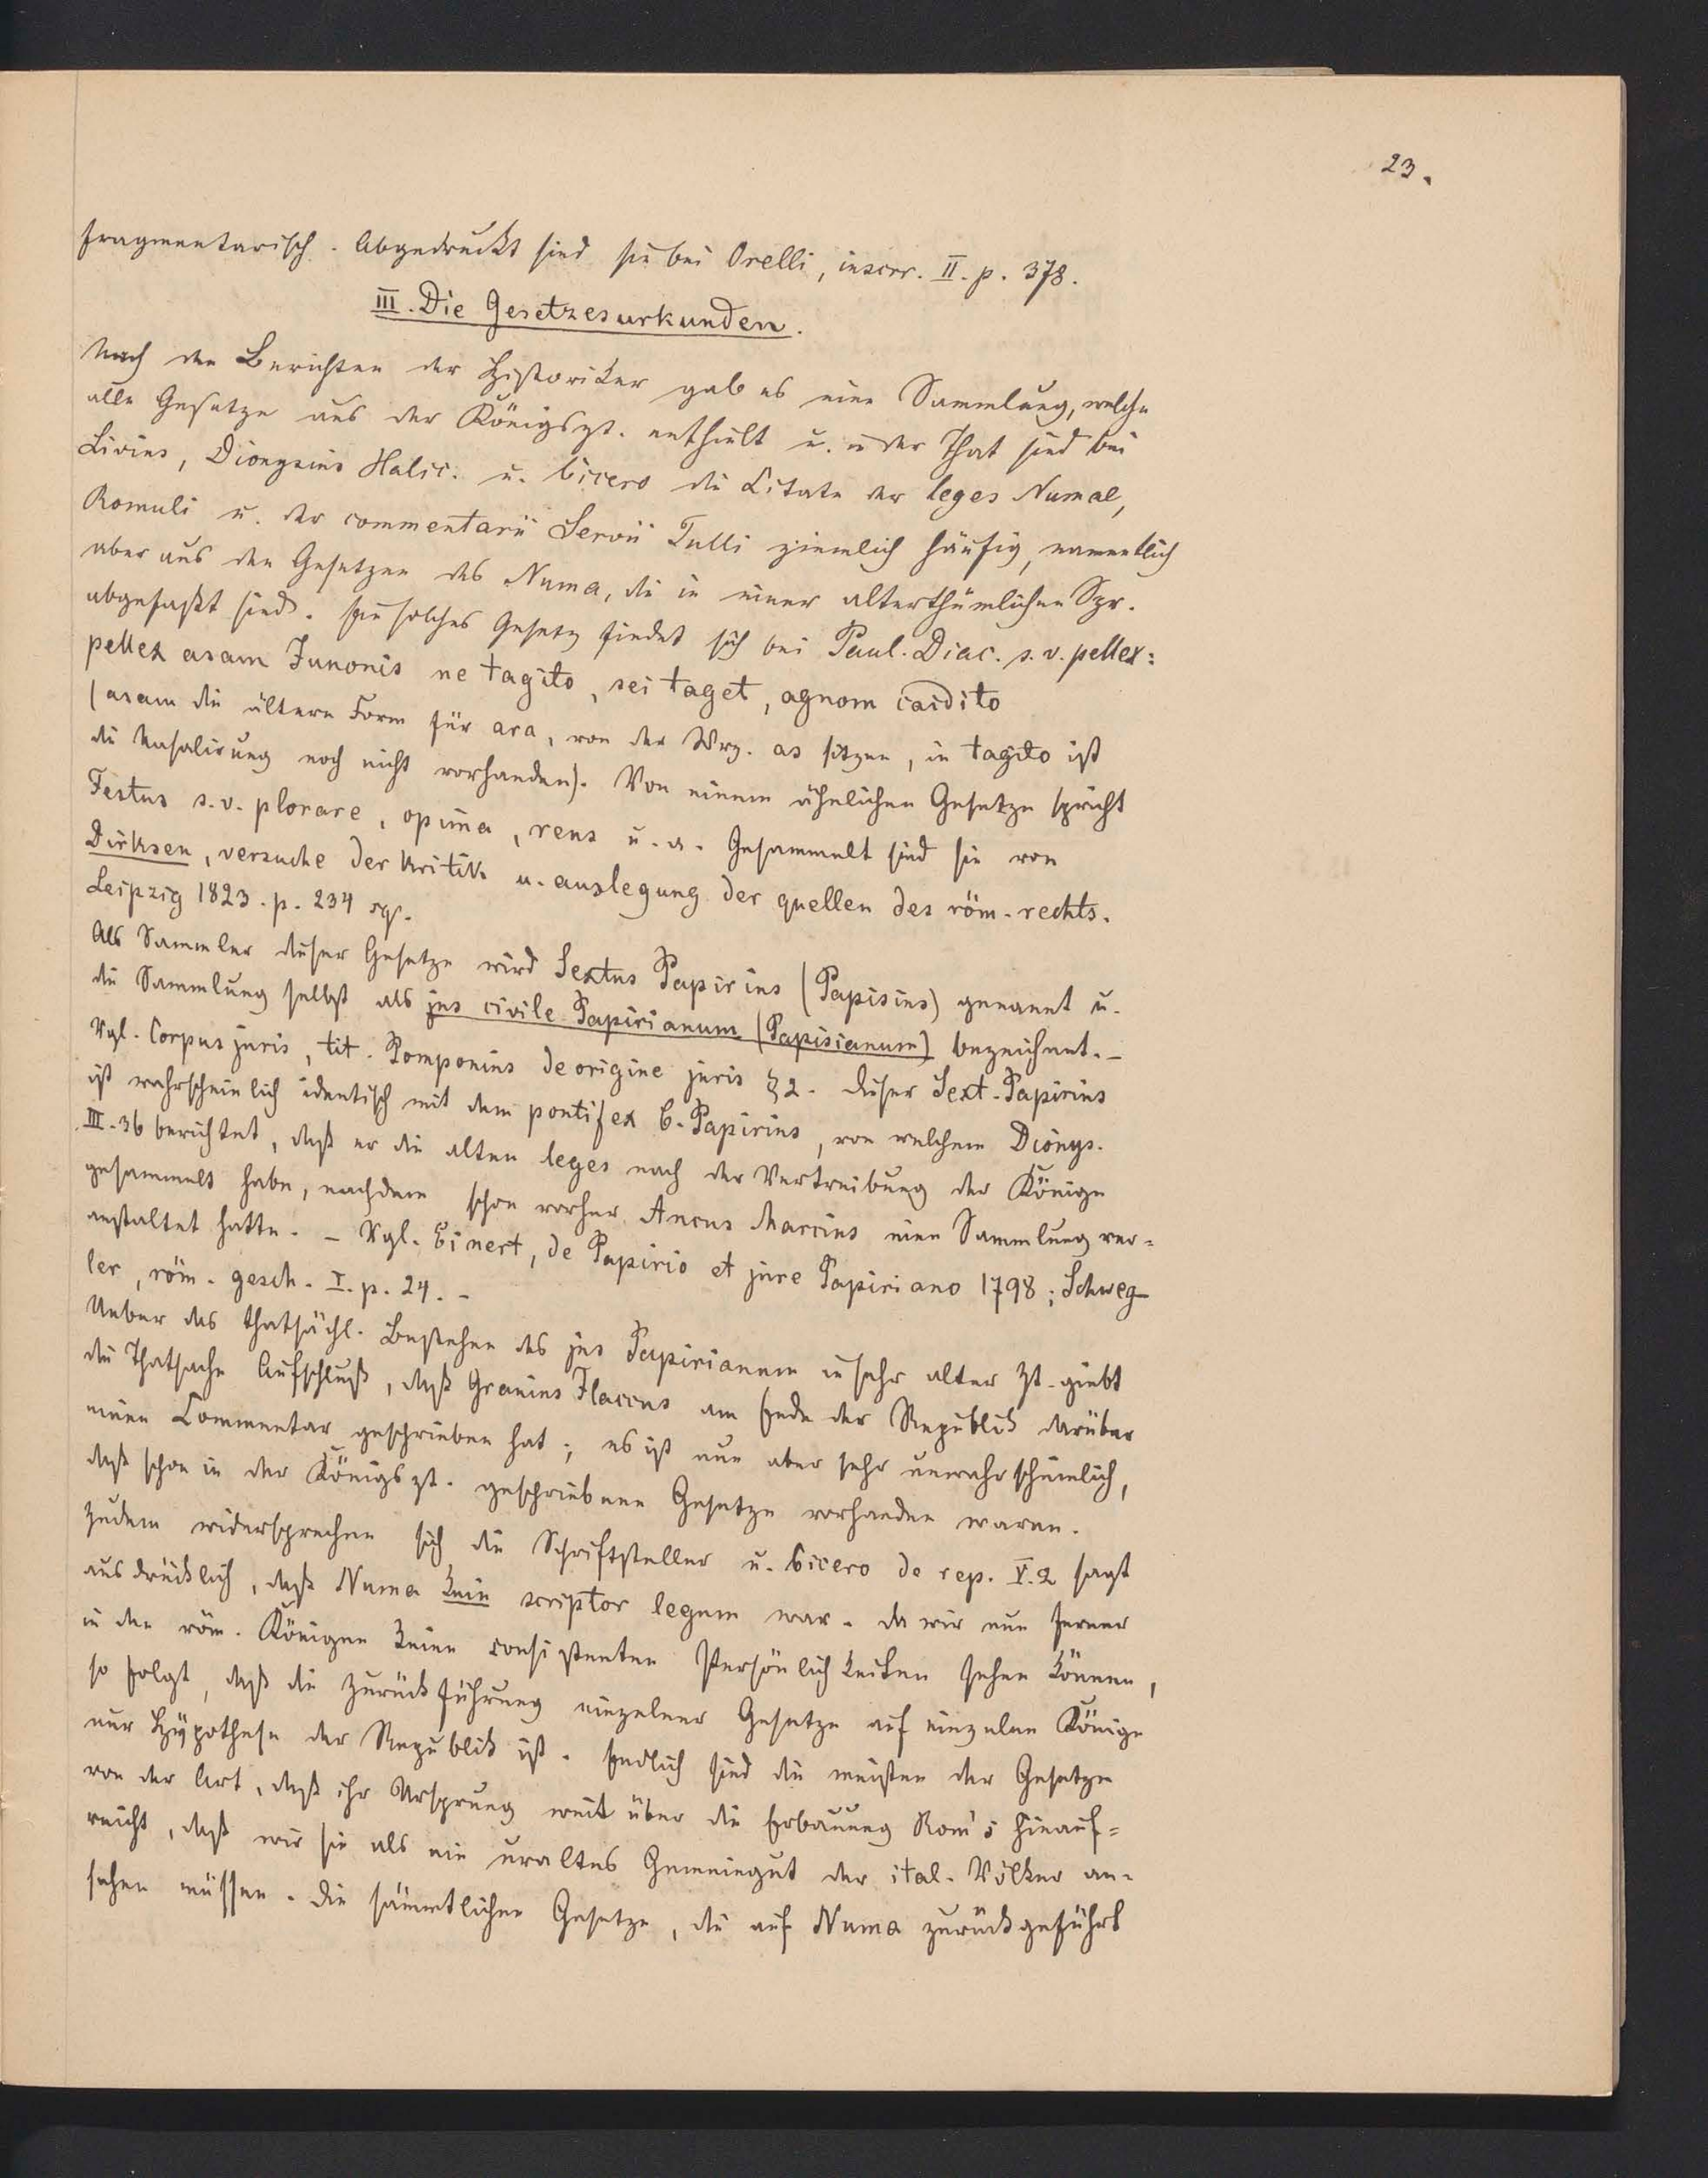 23.
fragmentarisch. Abgedruckt sind sie bei Orelli, inscrr. II. p. 378.
III. Die Gesetzesurkunden.
Nach den Berichten der Historiker gab es eine Sammlung, welche
alle Gesetze aus der Königszt. enthielt u. in der That sind bei
Livius, Dionysius Halic. u. Cicero die Citate der leges Numae,
Romuli u. der commentarii Servii Tulli ziemlich häufig, namentlich
aber aus den Gesetzen des Numa, die in einer alterthümlichen Spr.
abgefaßt sind. Ein solches Gesetz findet sich bei Paul. Diac. s. v. pellex:
pellex asam Junonis ne tagito, sei taget, agnom caidito
(asam die ältere Form für ara, von der Wrz. as sitzen, in tagito ist
die Nasalirung noch nicht vorhanden). Von einem ähnlichen Gesetze spricht
Festus s. v. plorare, opima, reus u. a. Gesammelt sind sie von
Dirksen, versuche der kritik u. auslegung der quellen des röm. rechts.
Leipzig 1823. p. 234 sqq.
Als Sammler dieser Gesetze wird Sextus Papirius (Papisius) genannt u.
die Sammlung selbst als jus civile Papirianum (Papisianum) bezeichnet. –
Vgl. Corpus juris, tit. Pomponius de origine juris § 2. Dieser Sext. Papirius
ist wahrscheinlich identisch mit dem pontifex C. Papirius, von welchem Dionys.
III. 36 berichtet, daß er die alten leges nach der Vertreibung der Könige
gesammelt habe, nachdem schon vorher Ancus Marcius eine Sammlung ver=
anstaltet hatte. – Vgl. Einert, de Papirio et jure Papiriano 1798; Schweg-
ler, röm. gesch. I. p. 24. –
Ueber das thatsächl. Bestehen des jus Papirianum in sehr alter Zt. giebt
die Thatsache Aufschluß, daß Granius Flaccus am Ende der Republik darüber
einen Commentar geschrieben hat; es ist nun aber sehr unwahrscheinlich,
daß schon in der Königszt. geschriebene Gesetze vorhanden waren.
Zudem widersprechen sich die Schriftsteller u. Cicero de rep. V. 2 sagt
ausdrücklich, daß Numa kein scriptor legum war. Da wir nun ferner
in den röm. Königen keine consistenten Persönlichkeiten sehen können,
so folgt, daß die Zurückführung einzelner Gesetze auf einzelne Könige
nur Hypothese der Republik ist. Endlich sind die meisten der Gesetze
von der Art, daß ihr Ursprung weit über die Erbauung Rom's hinauf=
reicht, daß wir sie als ein uraltes Gemeingut der ital. Völker an=
sehen müssen. Die sämmtlichen Gesetze, die auf Numa zurückgeführt